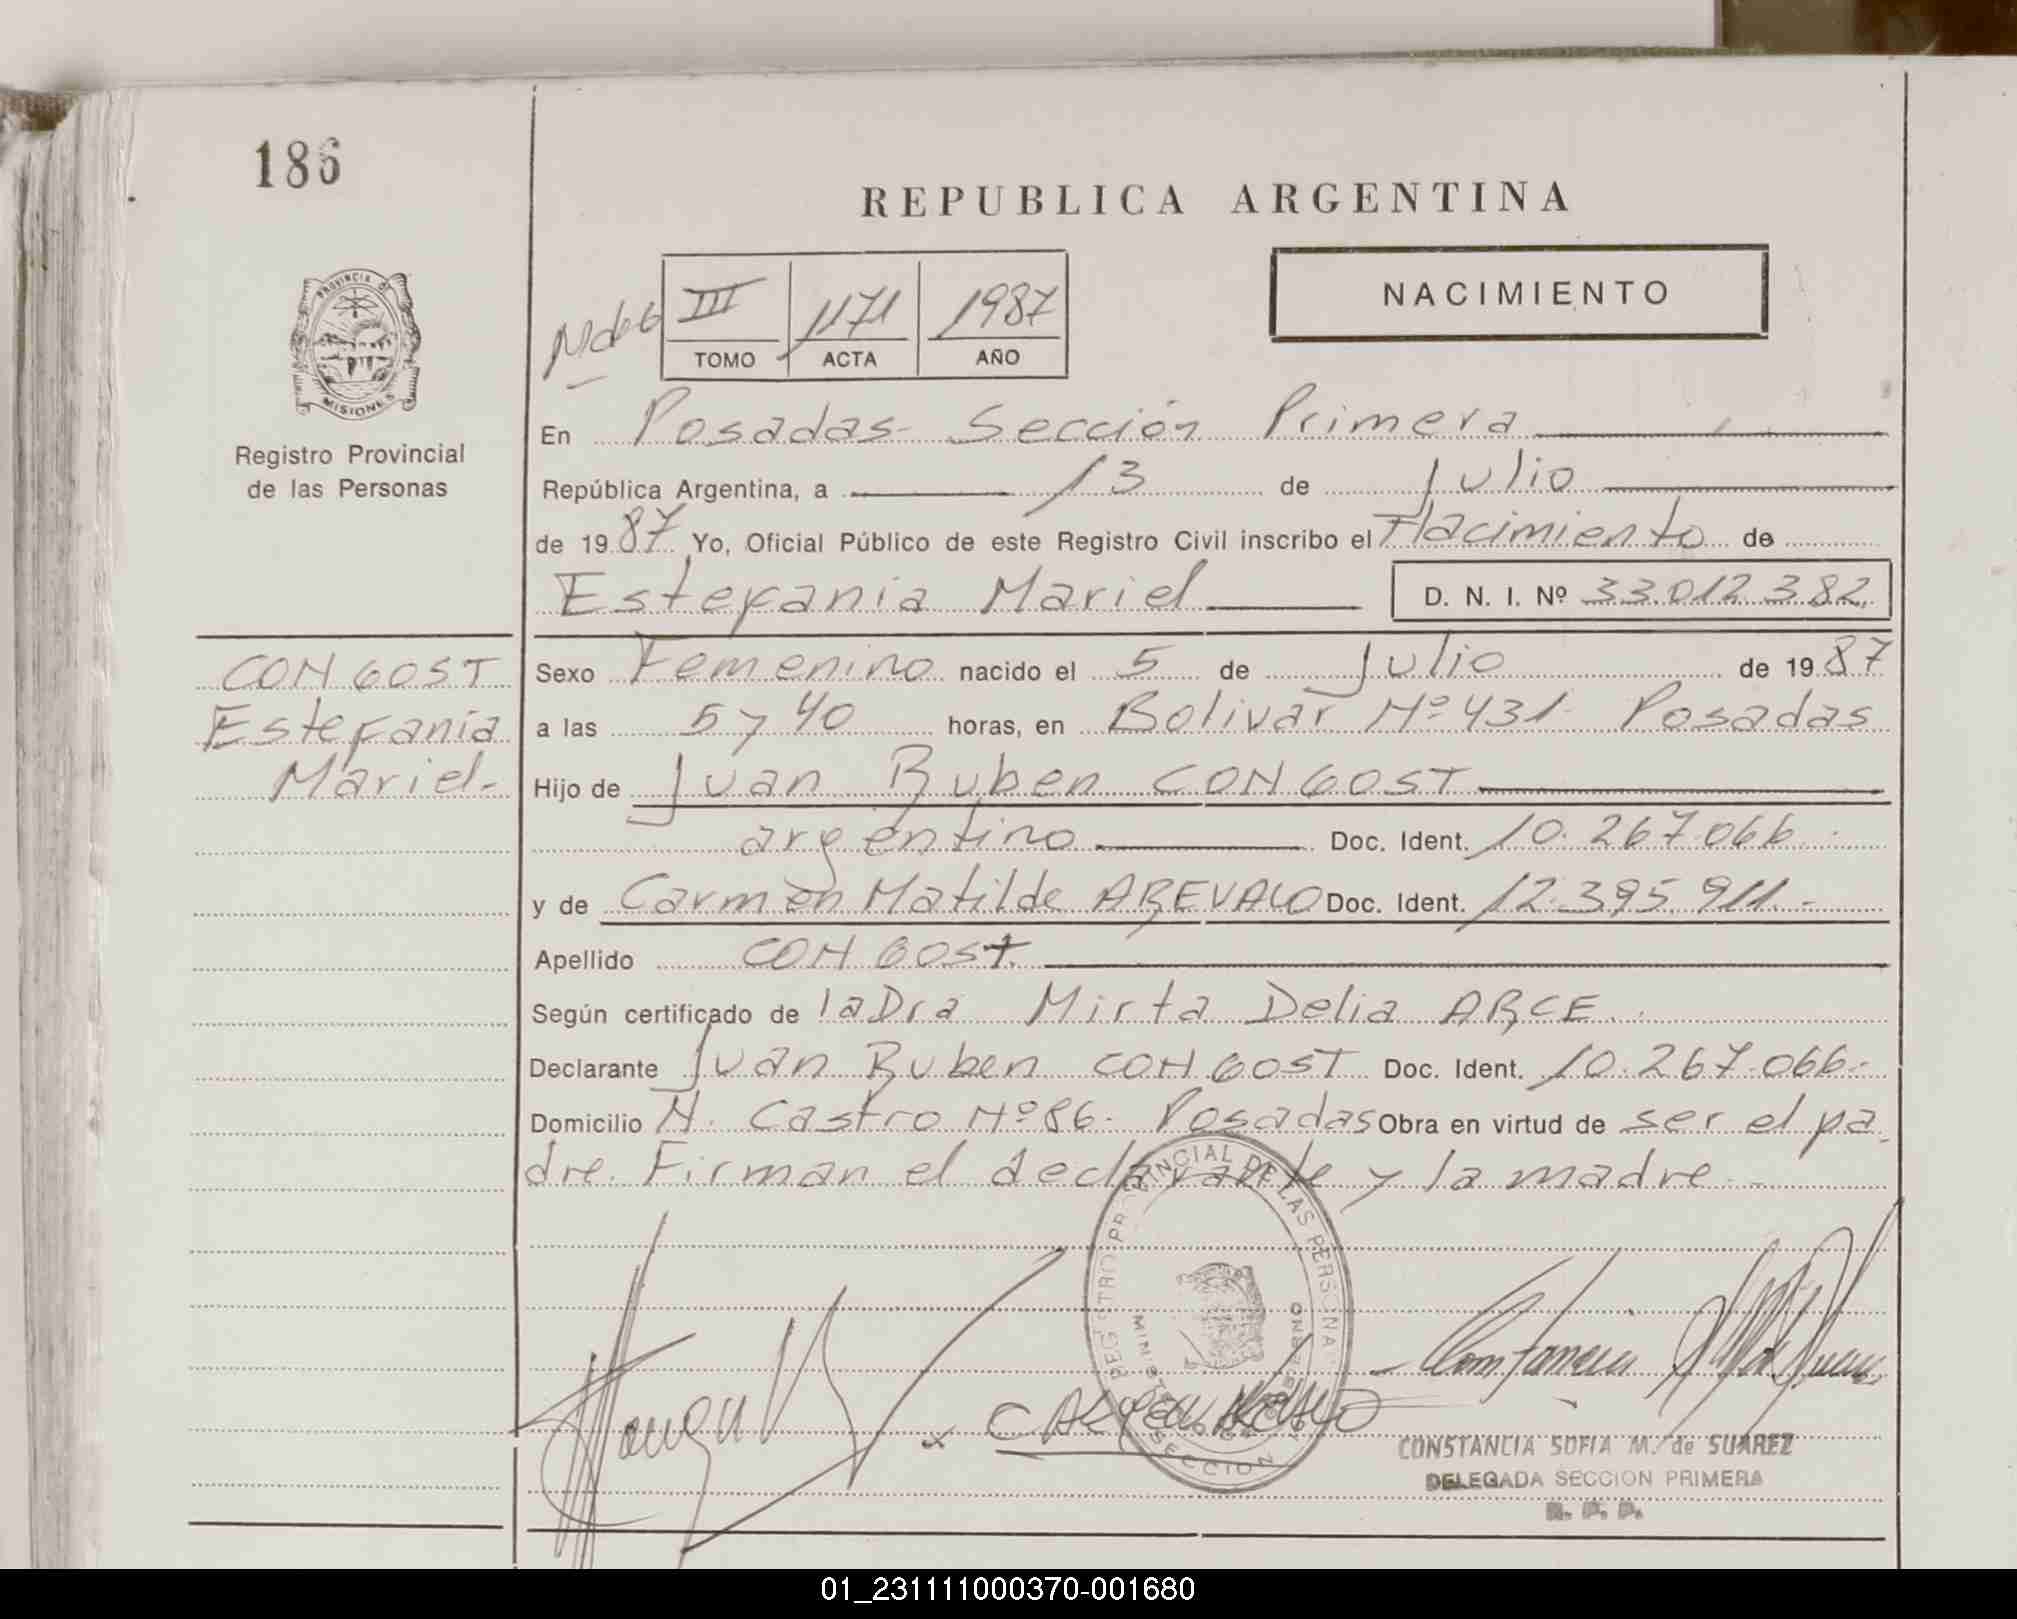 186
REPUBLICA ARGENTINA
PROVINCIA D
MISIONES
Registro Provincial
de las Personas
III 1171 1987
TOMO ACTA AÑO
NACIMIENTO
En Posadas- Sección Primera
República Argentina, a 13 de Julio
de 1987 Yo, Oficial Público de este Registro Civil inscribo el Nacimiento de
Estefania Mariel D. N. I. Nº 33.012.382
CONGOST
Estefania
Mariel-
Sexo Femenino nacido el 5 de Julio de 1987
a las 5 y 40 horas, en Bolivar Nº 431- Posadas
Hijo de Juan Ruben CONGOST
argentino Doc. Ident. 10.267.066
y de Carmen Matilde AREVALO Doc. Ident. 12.395.911.-
Apellido CONGOST
Según certificado de la Dra Mirta Delia ARCE
Declarante Juan Ruben CONGOST Doc. Ident. 10.267.066-
Domicilio N. Castro Nº 86- Posadas Obra en virtud de ser el pa
dre. Firman el declarante y la madre.-
REGISTRO PROVINCIAL DE LAS PERSONA
SECCION
CONSTANCIA SOFIA M. de SUAREZ
DELEGADA SECCION PRIMERA
R. P. P.
01_231111000370-001680